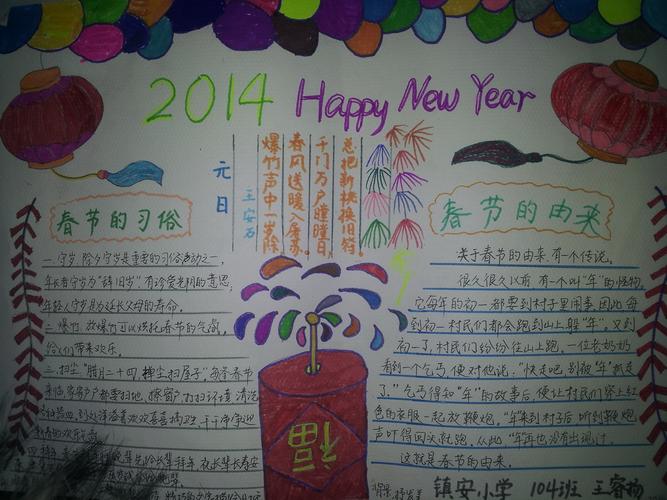 2014 Happy New Year
元日
王安石
爆竹声中一岁除
春风送暖入屠苏.
千门万户曈曈日
总把新桃换旧符.
春节的习俗
一.守岁.除夕守岁是重要的习俗活动之一,
年长者守岁为"辞旧岁"有珍爱光阴的意思,
年轻人守岁是为延长父母的寿命.
二.爆竹.放爆竹可以烘托春节的气氛,
给人们带来欢乐.
三.扫尘"腊月二十四,掸尘扫房子"每逢春节
来临,家家户户都要扫地,擦窗户,打扫环境,清洗
干干净净迎
春节的由来
关于春节的由来,有一个传说.
很久很久以前,有一个叫"年"的怪物.
它每年的初一都要到村子里闹事,因此每
到初一村民们都会跑到山上躲"年".又到
初一了,村民们纷纷往山上跑,一位老奶奶
看到一个乞丐,便对他说:"快走吧,别被"年"抓走
了."乞丐得知"年"的故事后,便让村民们穿上红
色的衣服一起放鞭炮."年"来到村子后,听到鞭炮
声吓得回头就跑,从此,"年"再也没有出现过.
这就是春节的由来.
福
镇安小学 104班 王睿